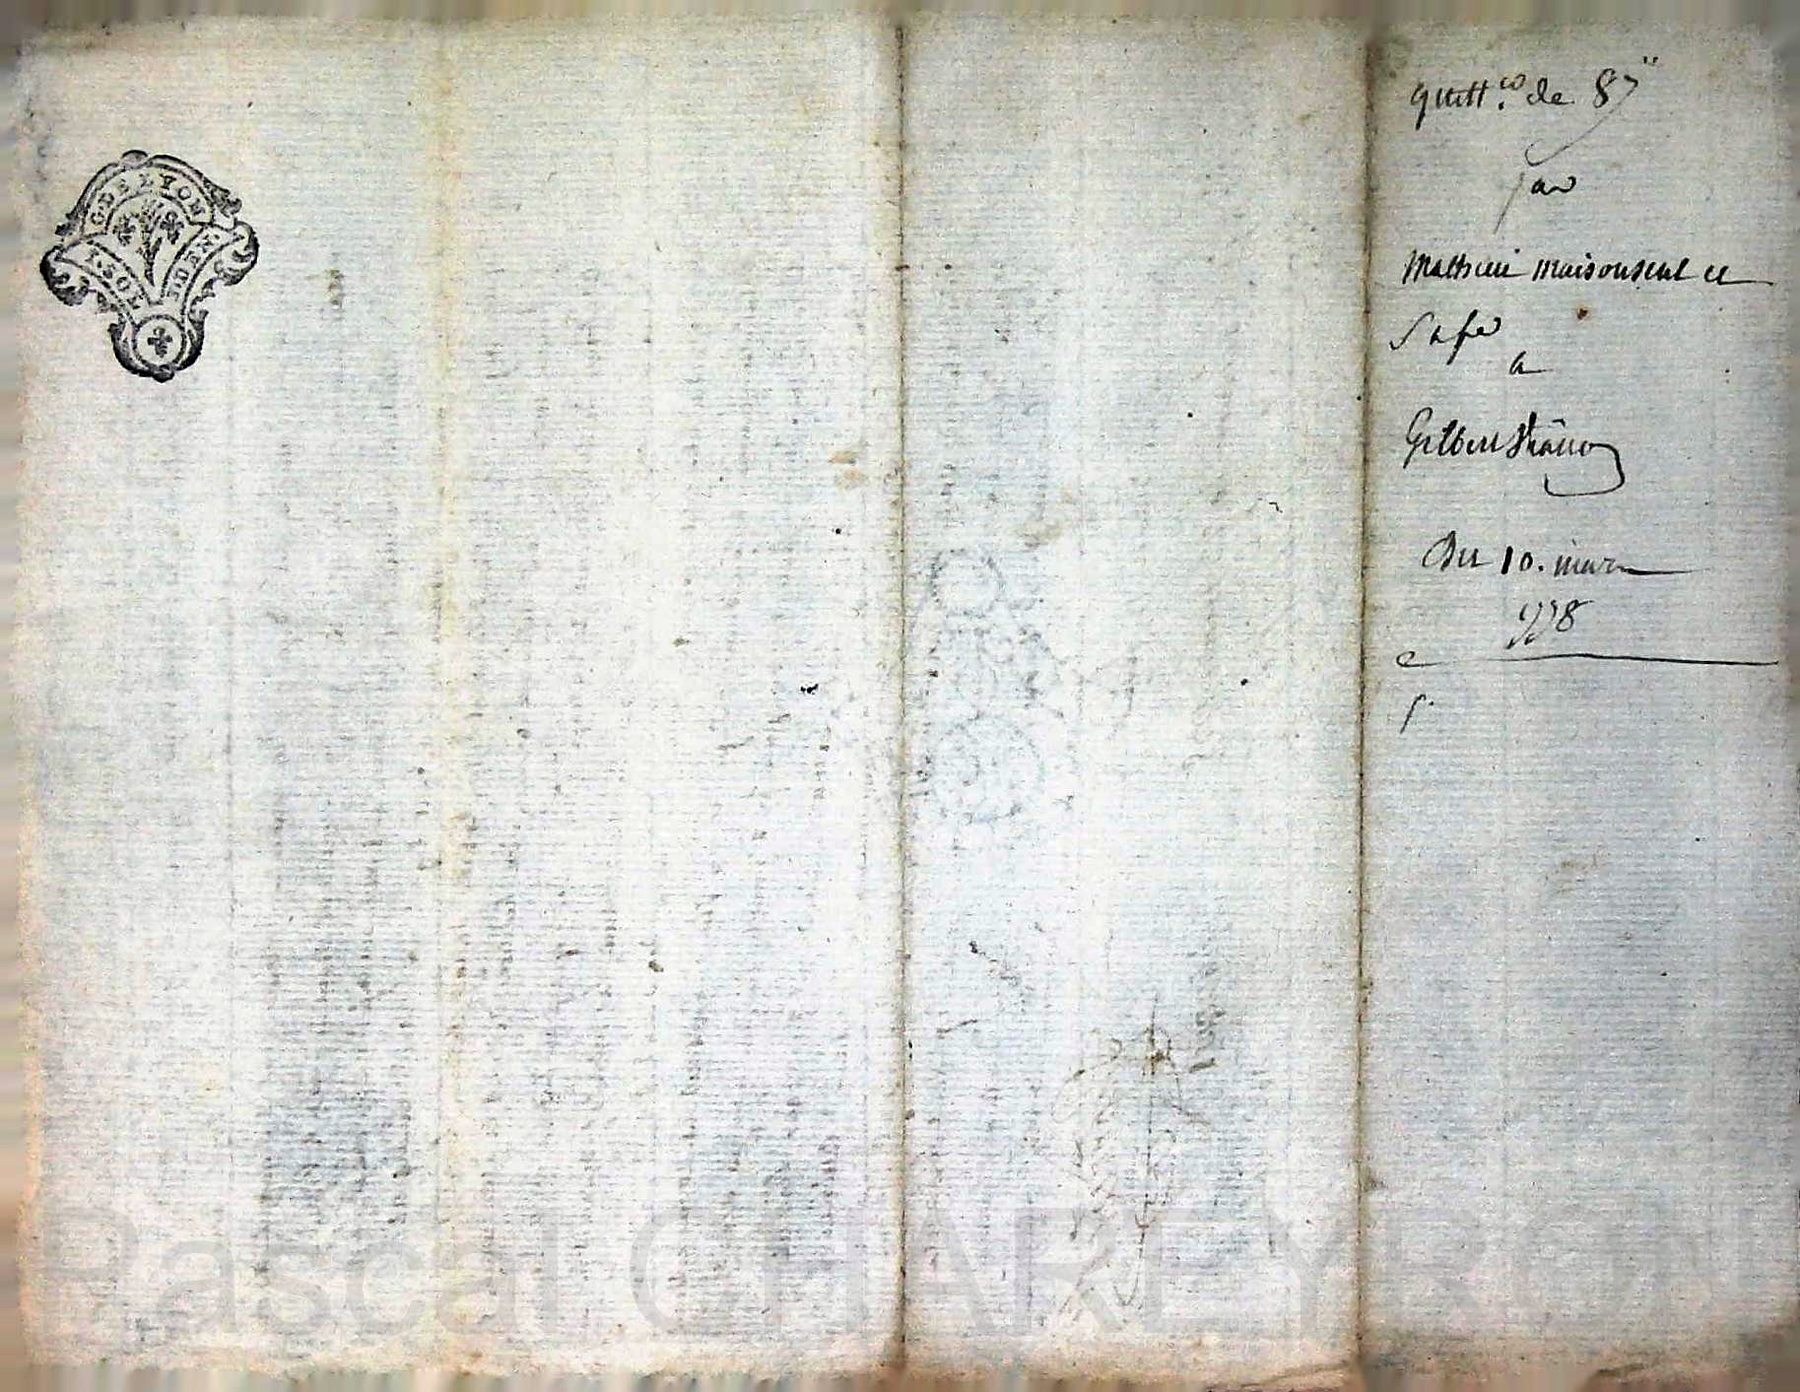 G. DE LYON
1. SOL
8 DEN.
quitt.ce de 87"
par
Mathieu maisonseul et
Sa fe
a
Gilbert
Du 10. mars
1758
Pascal CHAREYRON